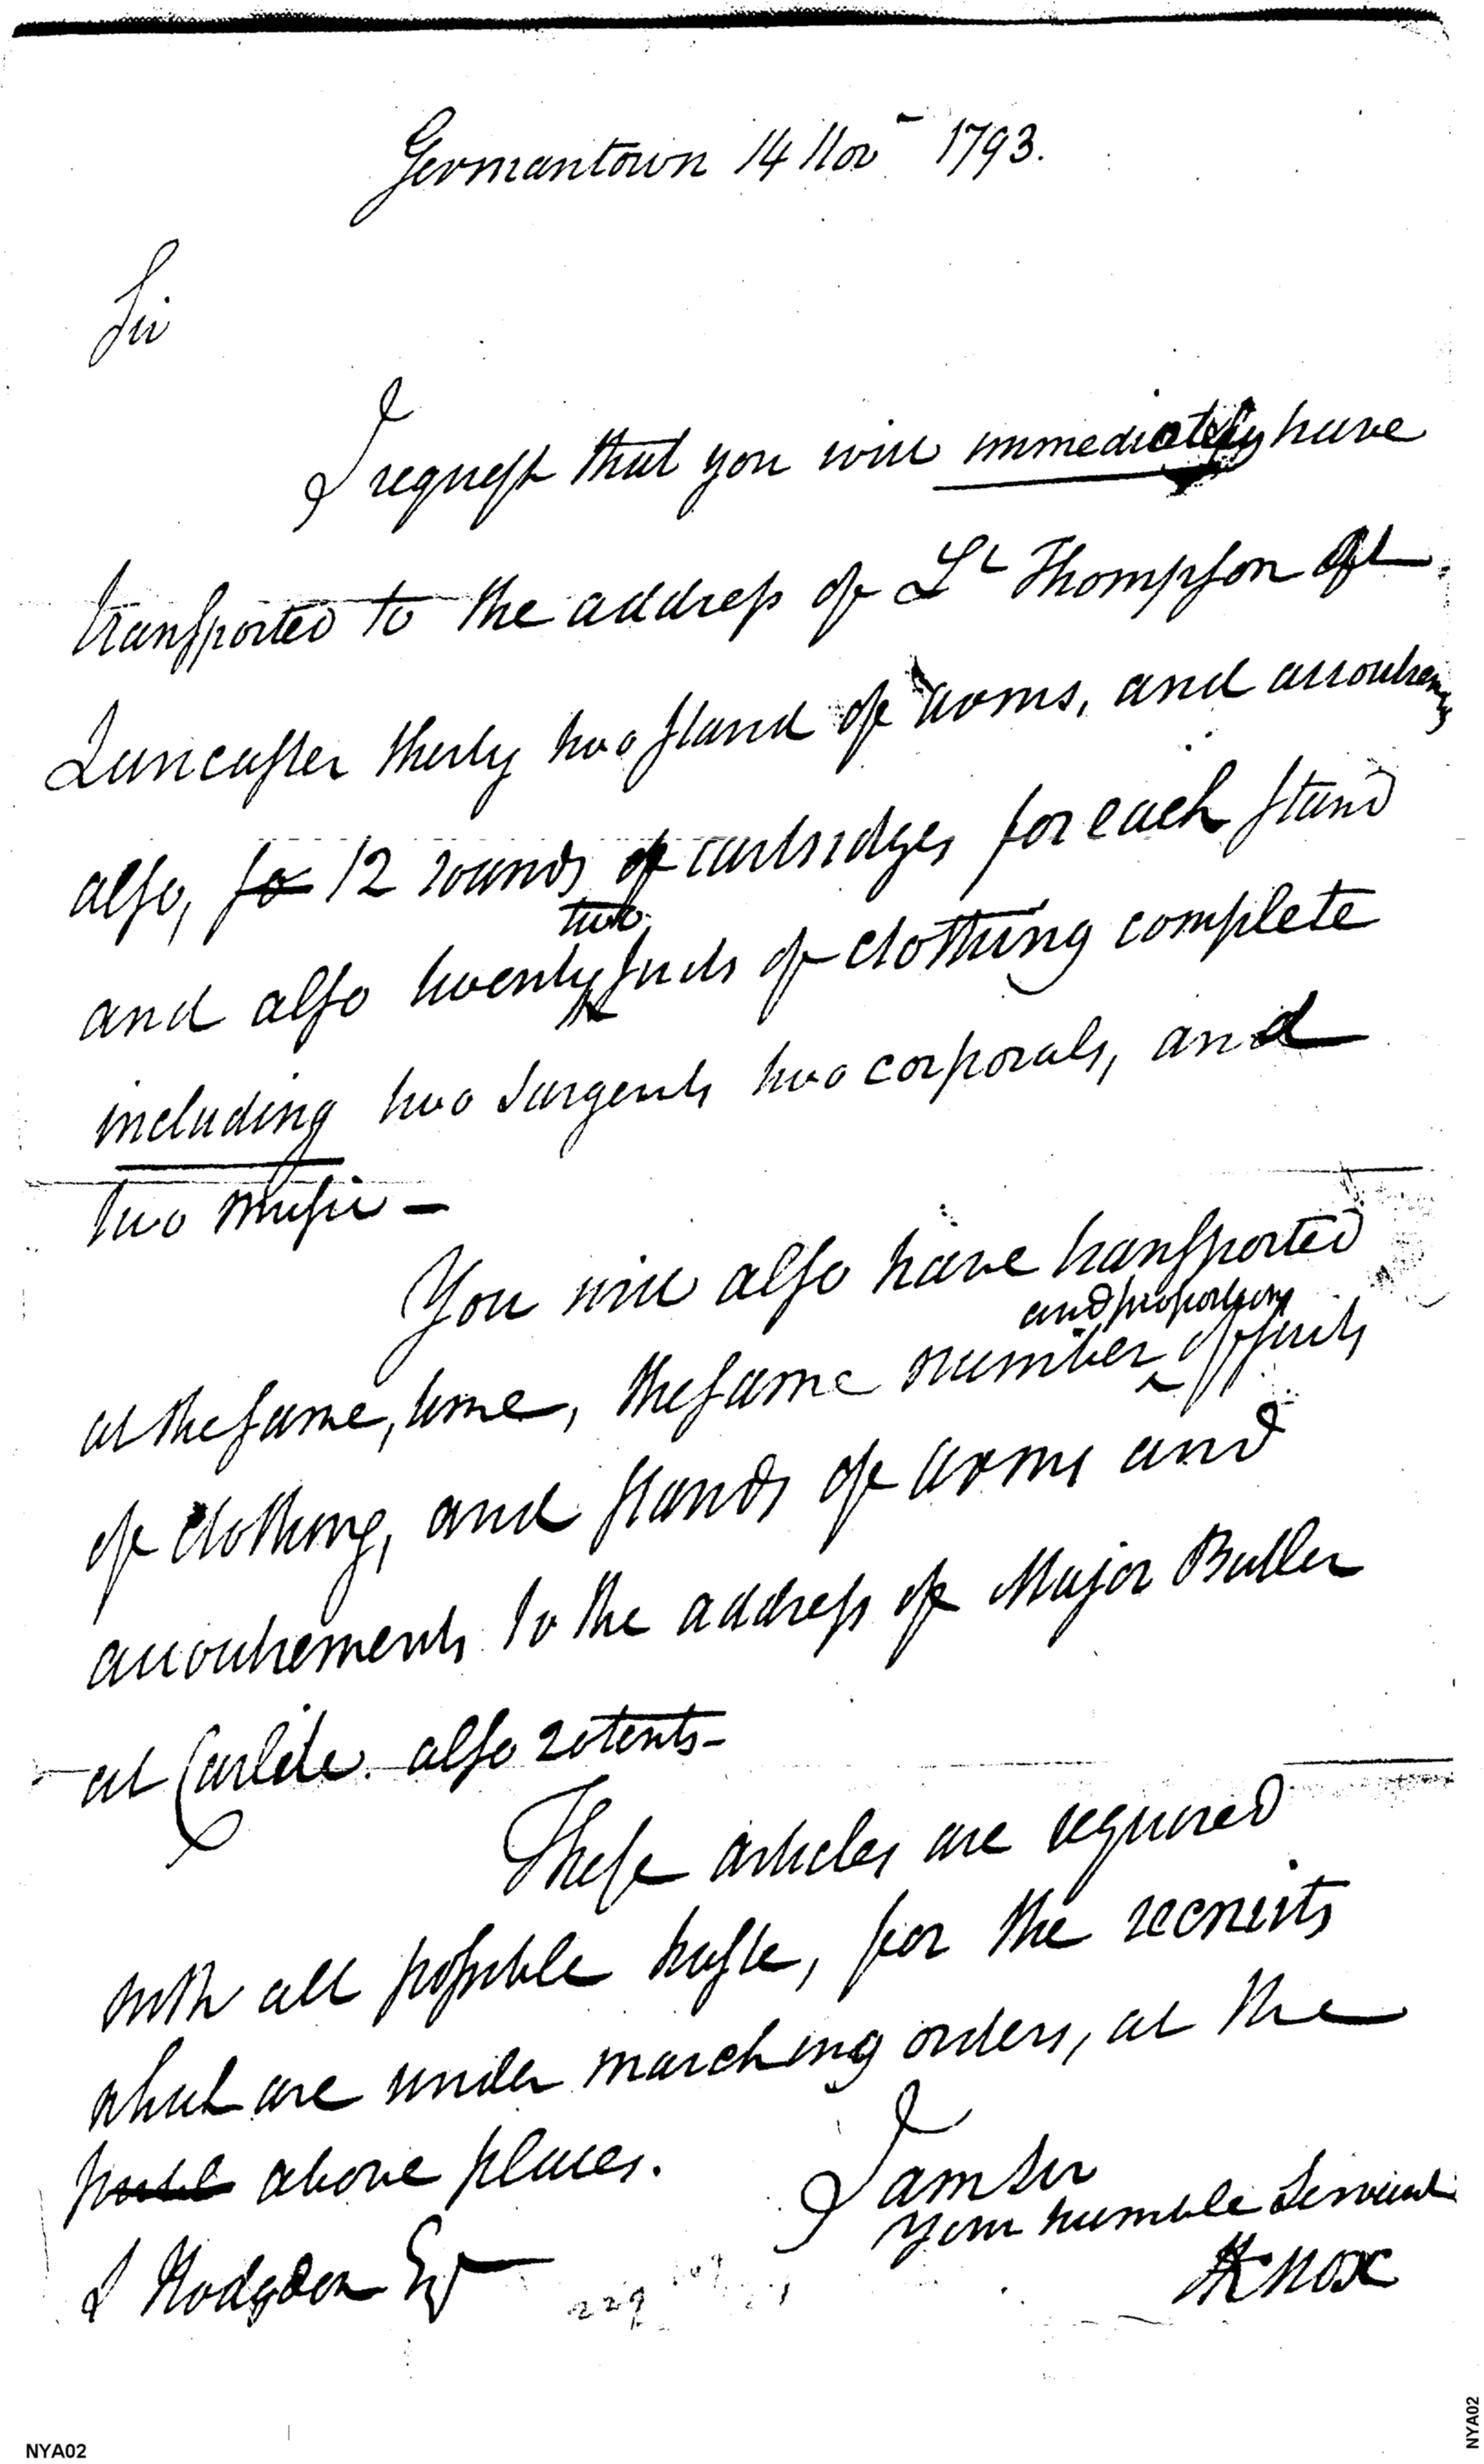 Germantown 14 Nov 1793.
Sir
I request that you will immediately have
transported to the address of Lt Thompson at
Lancaster thirty two stand of arms, and accoutrements
also, fo 12 rounds of cartridges for each stand
two
and also twenty suits of clothing complete
including two Sargents two corporals, and
two music –
You will also have transported
and proportions
at the same, time, the same number of suits
of clothing, and stands of arms and
accoutrements to the address of Major Butler
at Carlile. also 20 tents –
These articles are required
with all possible haste, for the recruits
which are under marching orders, at the
above places.
I am Sir
Your humble Servant
HKnox
S Hodgdon Esqr
229
NYA02
NYA02